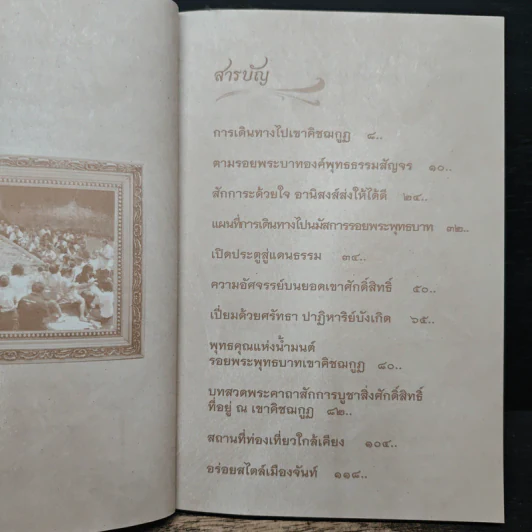 สารบัญ
การเดินทางไปเขาคิชฌกูฏ ๘..
ตามรอยพระบาทองค์พุทธธรรมสัญจร ๑๐..
สักการะด้วยใจ อานิสงส์ส่งให้ได้ดี ๒๔..
แผนที่การเดินทางไปนมัสการรอยพระพุทธบาท ๓๒..
เปิดประตูสู่แดนธรรม ๓๔..
ความอัศจรรย์บนยอดเขาศักดิ์สิทธิ์ ๕๐..
เปี่ยมด้วยศรัทธา ปาฏิหาริย์บังเกิต ๖๕..
พุทธคุณแห่งน้ำมนต์
รอยพระพุทธบาทเขาคิชฌกูฏ ๘๐..
บทสวดพระคาถาสักการบูชาสิ่งศักดิ์สิทธิ์
ที่อยู่ ณ เขาคิชฌกูฏ ๘๒..
สถานที่ท่องเที่ยวใกล้เคียง ๑๐๔..
อร่อยสไตล์เมืองจันท์ ๑๑๘..